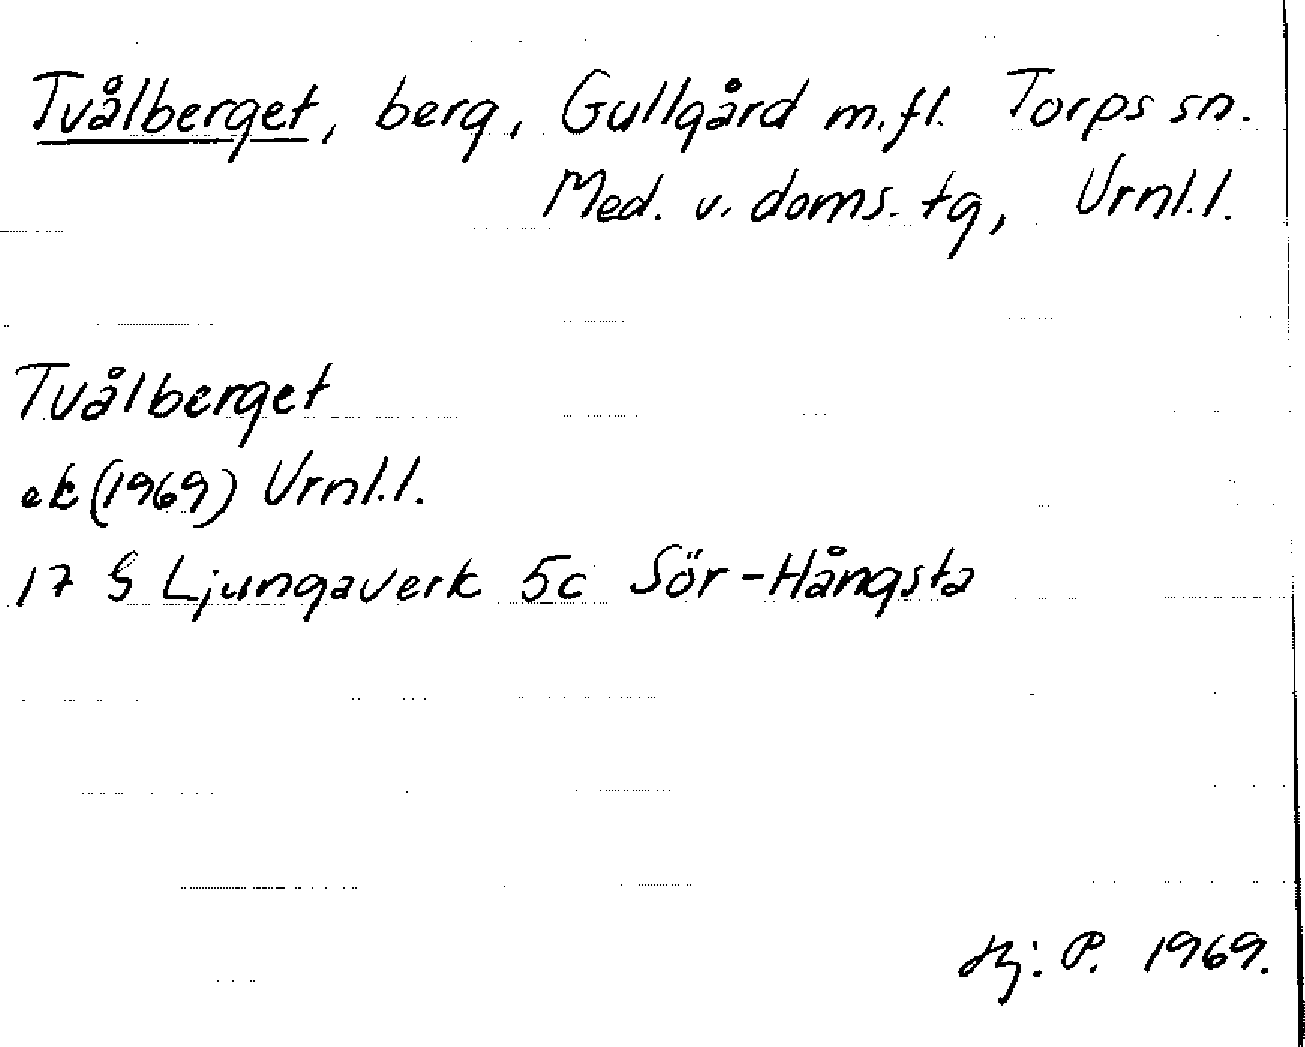 Tvålberget, berg, Gullgård m.fl. Torps sn.
Med. v. doms. tg, Vrnl.l.
Tvålberget
ek (1969) Vrnl.l.
17 G Ljungaverk 5c Sör-Hångsta
Hj: P. 1969.